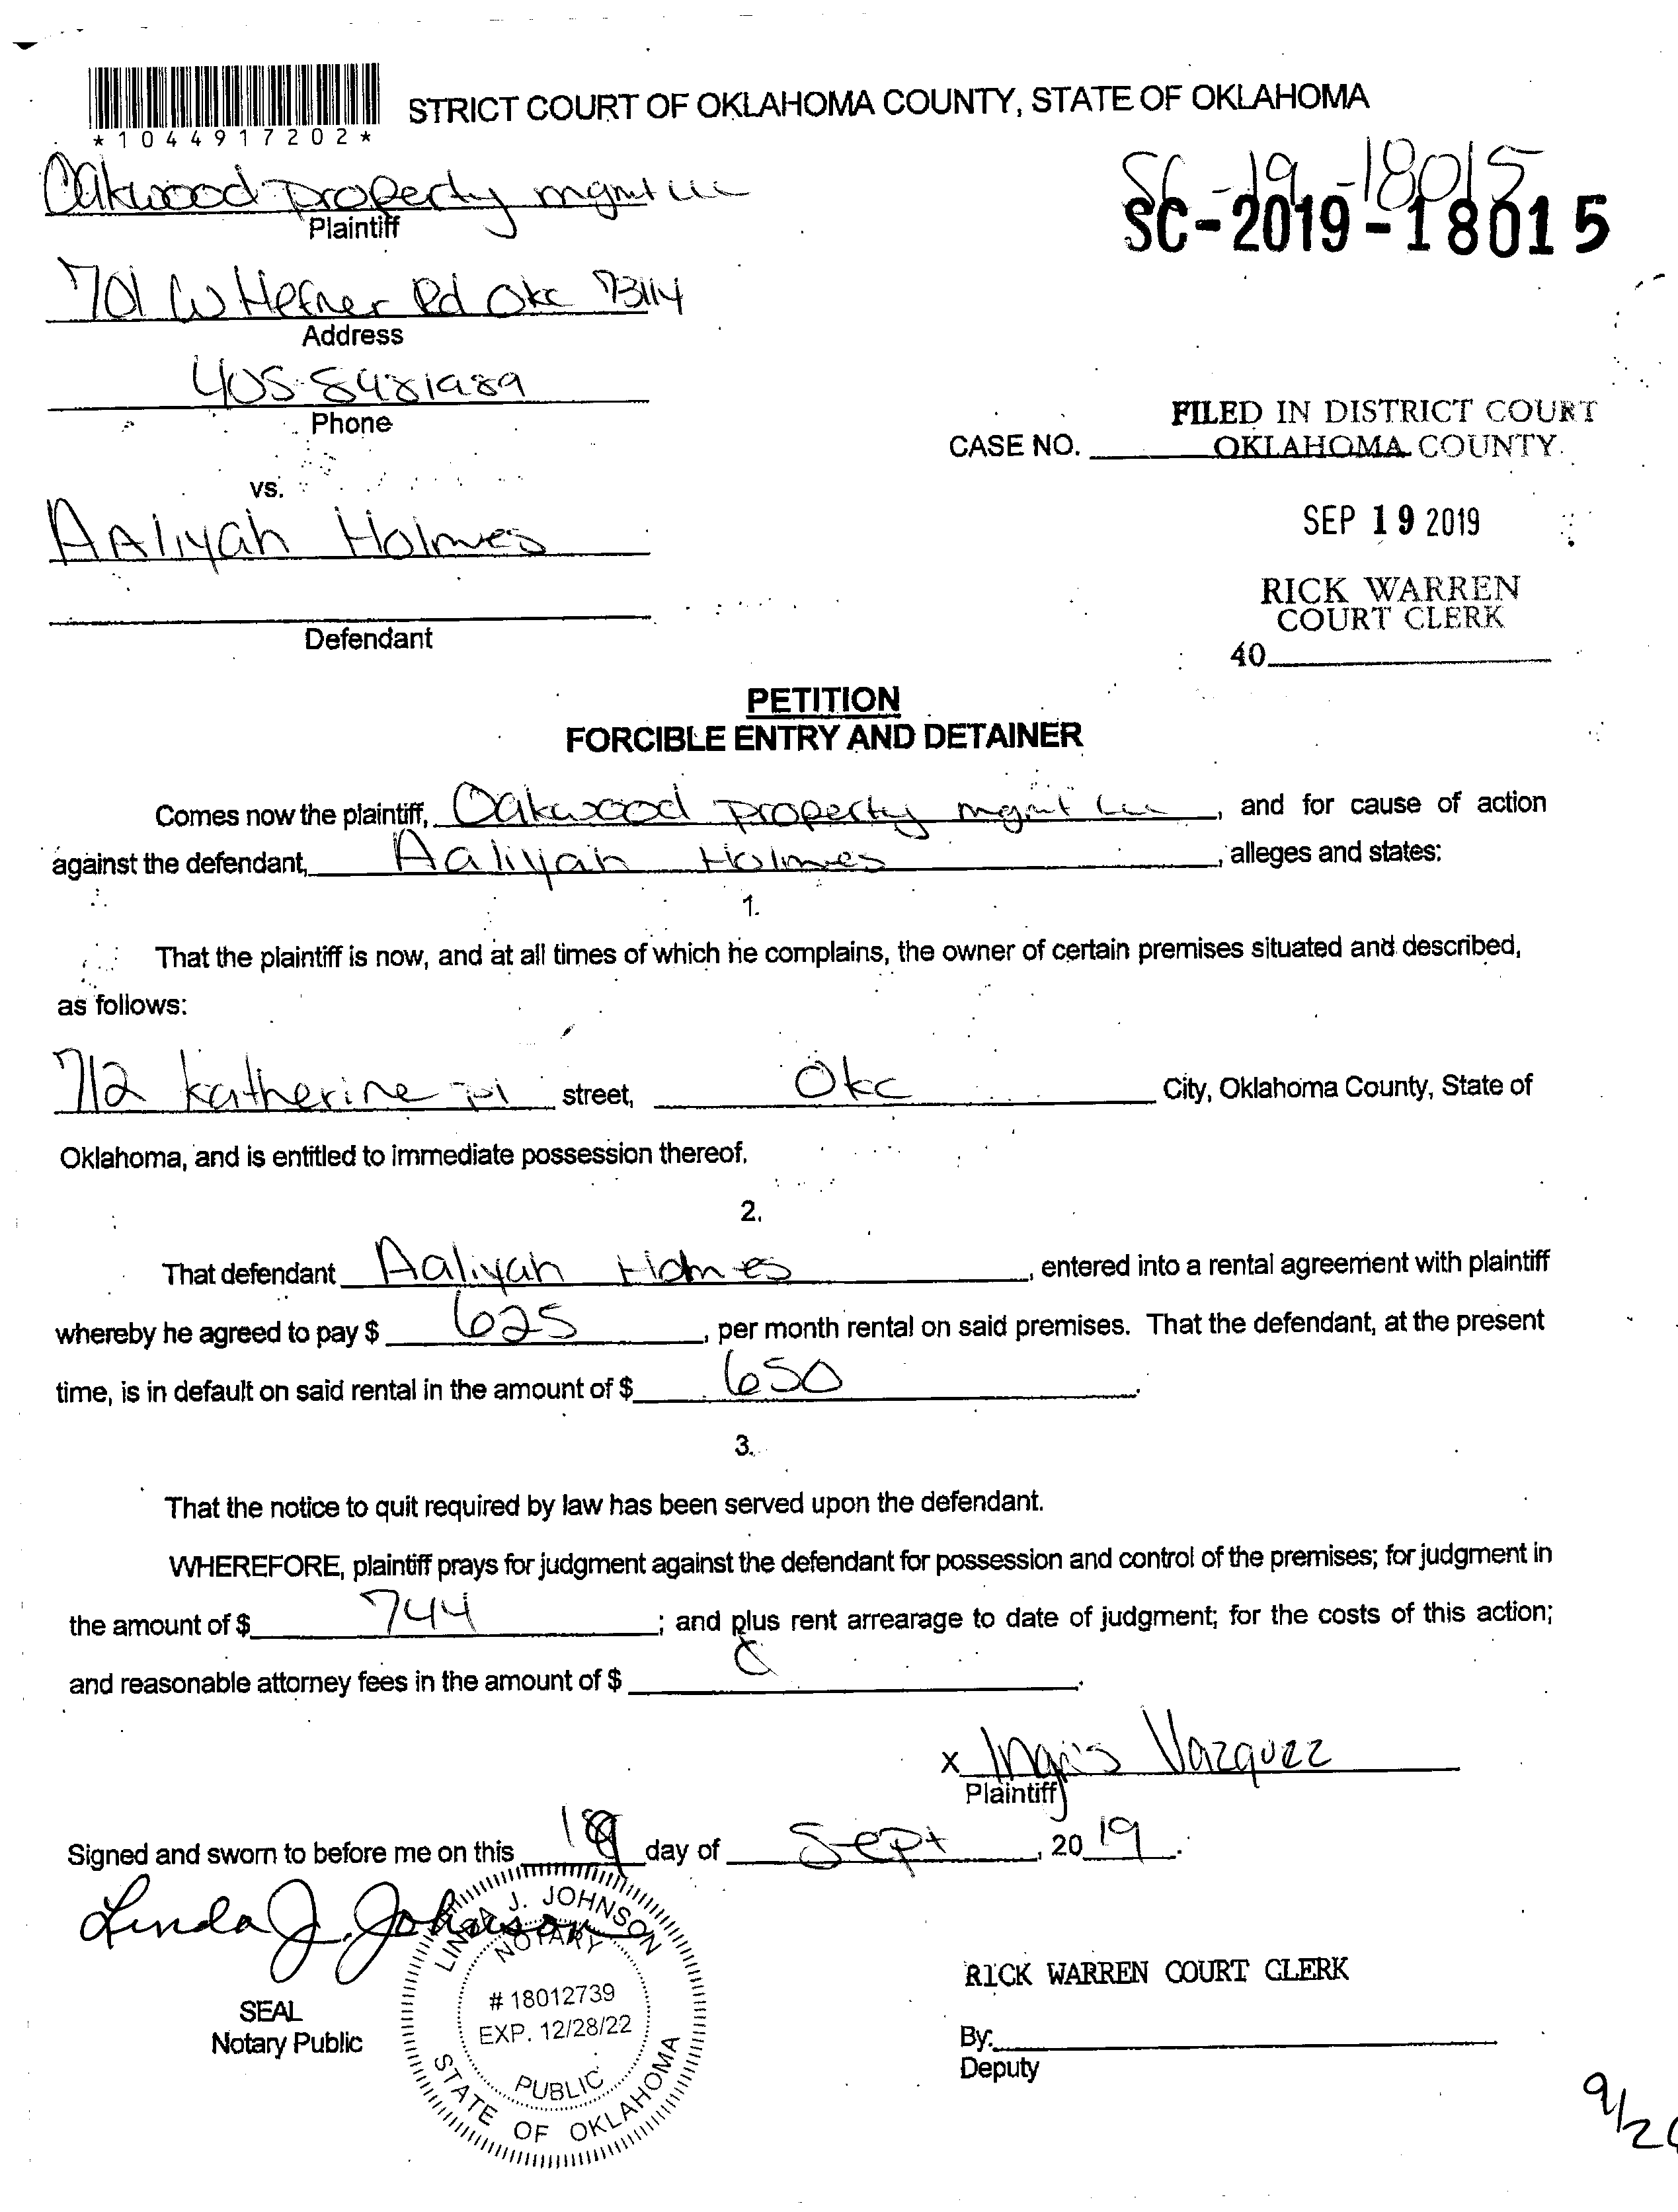 STRICT COURT OF OKLAHOMA COUNTY, STATE OF OKLAHOMA
*1044917202*
Oakwood property mgmt LLC
Plaintiff
SC-19-18015
SC-2019-18015
701 W Hefner Rd Okc 73114
Address
405-8481989
Phone
FILED IN DISTRICT COURT
CASE NO. OKLAHOMA COUNTY
vs.
SEP 19 2019
AAliyah Holmes
RICK WARREN
COURT CLERK
Defendant
40
PETITION
FORCIBLE ENTRY AND DETAINER
Comes now the plaintiff, Oakwood property mgmt LLC, and for cause of action
against the defendant, Aaliyah Holmes, alleges and states:
1.
That the plaintiff is now, and at all times of which he complains, the owner of certain premises situated and described,
as follows:
712 Katherine Pl street, Okc City, Oklahoma County, State of
Oklahoma, and is entitled to immediate possession thereof.
2.
That defendant Aaliyah Holmes, entered into a rental agreement with plaintiff
whereby he agreed to pay $ 625, per month rental on said premises. That the defendant, at the present
time, is in default on said rental in the amount of $ 650.
3.
That the notice to quit required by law has been served upon the defendant.
WHEREFORE, plaintiff prays for judgment against the defendant for possession and control of the premises; for judgment in
the amount of $ 744; and plus rent arrearage to date of judgment; for the costs of this action;
and reasonable attorney fees in the amount of $
x Ingris Vazquez
Plaintiff
Signed and sworn to before me on this day of Sept, 2019.
Linda J. Johnson
LINDA J. JOHNSON
NOTARY
# 18012739
EXP. 12/28/22
PUBLIC
STATE OF OKLAHOMA
SEAL
Notary Public
RICK WARREN COURT CLERK
By:
Deputy